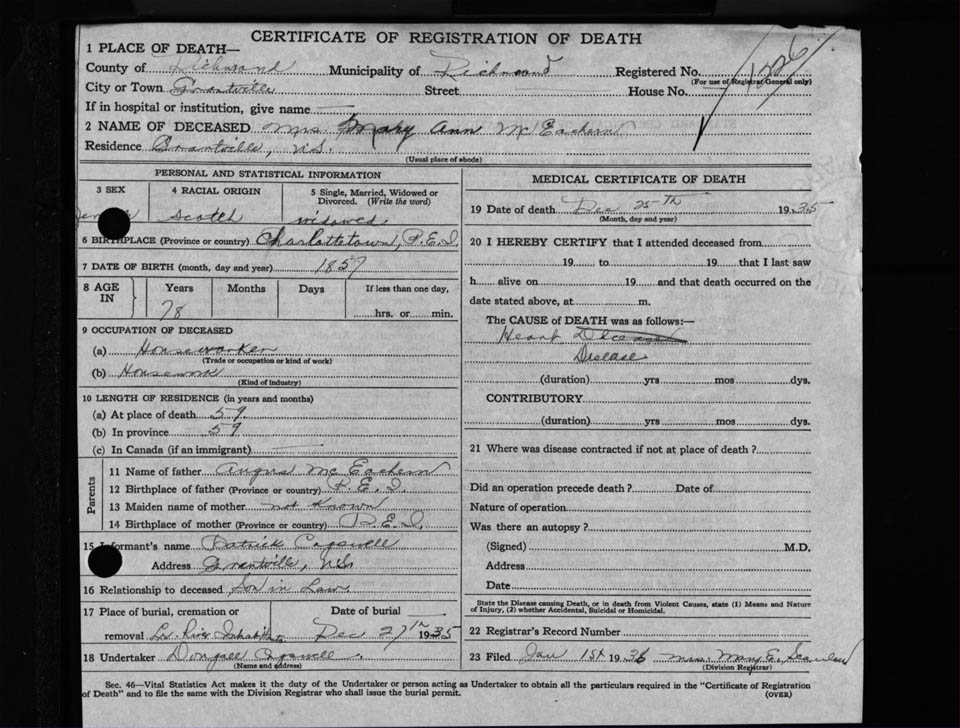 CERTIFICATE OF REGISTRATION OF DEATH
1 PLACE OF DEATH—
County of Richmond Municipality of Richmond Registered No. 1226
(For use of Registrar General only)
City or Town Grantville Street House No.
If in hospital or institution, give name
2 NAME OF DECEASED Mrs Mary Ann McEachern
Residence Grantville, N.S.
(Usual place of abode)
PERSONAL AND STATISTICAL INFORMATION
3 SEX 4 RACIAL ORIGIN 5 Single, Married, Widowed or Divorced. (Write the word)
Scotch widowed
6 BIRTHPLACE (Province or country) Charlottetown, P.E.I.
7 DATE OF BIRTH (month, day and year) 1857
8 AGE IN Years Months Days If less than one day,
78 hrs. or min.
9 OCCUPATION OF DECEASED
(a) Houseworker
(Trade or occupation or kind of work)
(b) Housework
(Kind of industry)
10 LENGTH OF RESIDENCE (in years and months)
(a) At place of death 59
(b) In province 59
(c) In Canada (if an immigrant)
Parents
11 Name of father Angus McEachern
12 Birthplace of father (Province or country) P.E.I.
13 Maiden name of mother not Known
14 Birthplace of mother (Province or country) P.E.I.
15 Informant's name Patrick
Address Grantville, N.S.
16 Relationship to deceased Son in Law
17 Place of burial, cremation or Date of burial
removal Lr. River Inhabitants Dec 27th 1935
18 Undertaker Dougall
(Name and address)
MEDICAL CERTIFICATE OF DEATH
19 Date of death Dec 25TH 1935
(Month, day and year)
20 I HEREBY CERTIFY that I attended deceased from
19 to 19 that I last saw
h alive on 19 and that death occurred on the
date stated above, at m.
The CAUSE of DEATH was as follows:—
Heart
Disease
(duration) yrs mos dys.
CONTRIBUTORY
(duration) yrs mos dys.
21 Where was disease contracted if not at place of death?
Did an operation precede death? Date of
Nature of operation
Was there an autopsy?
(Signed) M.D.
Address
Date
State the Disease causing Death, or in death from Violent Causes, state (1) Means and Nature
of Injury, (2) whether Accidental, Suicidal or Homicidal.
22 Registrar's Record Number
23 Filed Jan 1st 1936 Mrs. Mary E.
(Division Registrar)
Sec. 46—Vital Statistics Act makes it the duty of the Undertaker or person acting as Undertaker to obtain all the particulars required in the "Certificate of Registration
of Death" and to file the same with the Division Registrar who shall issue the burial permit. (OVER)